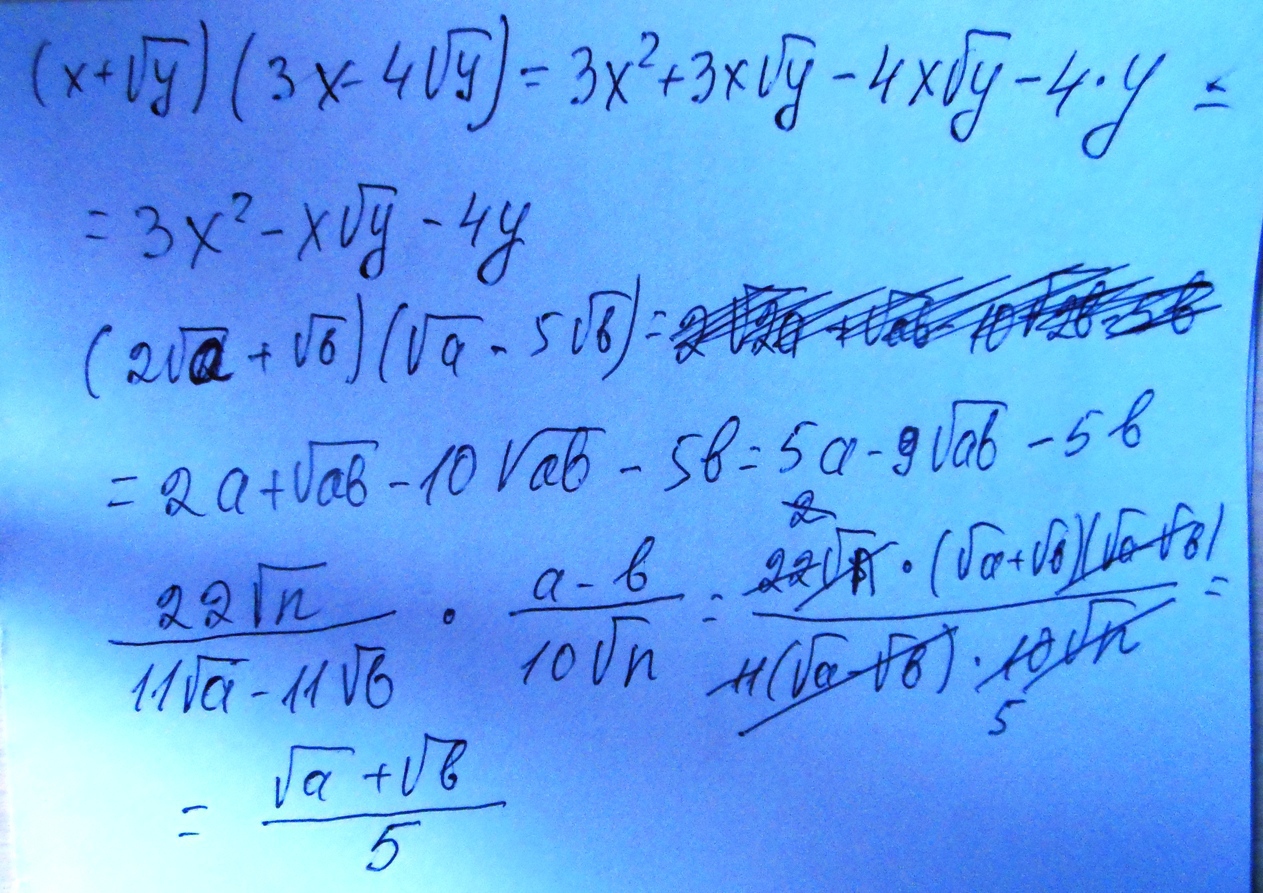 (x+√y)(3x-4√y)=3x²+3x√y-4x√y-4·y =
=3x²-x√y-4y
(2√a+√b)(√a-5√b)=
=2a+√ab-10√ab-5b=5a-9√ab-5b
22√n/(11√a-11√b) · (a-b)/(10√n) = 2 22√n·(√a+√b)(√a-√b)/(11(√a-√b)·10√n) 5 =
= (√a+√b)/5